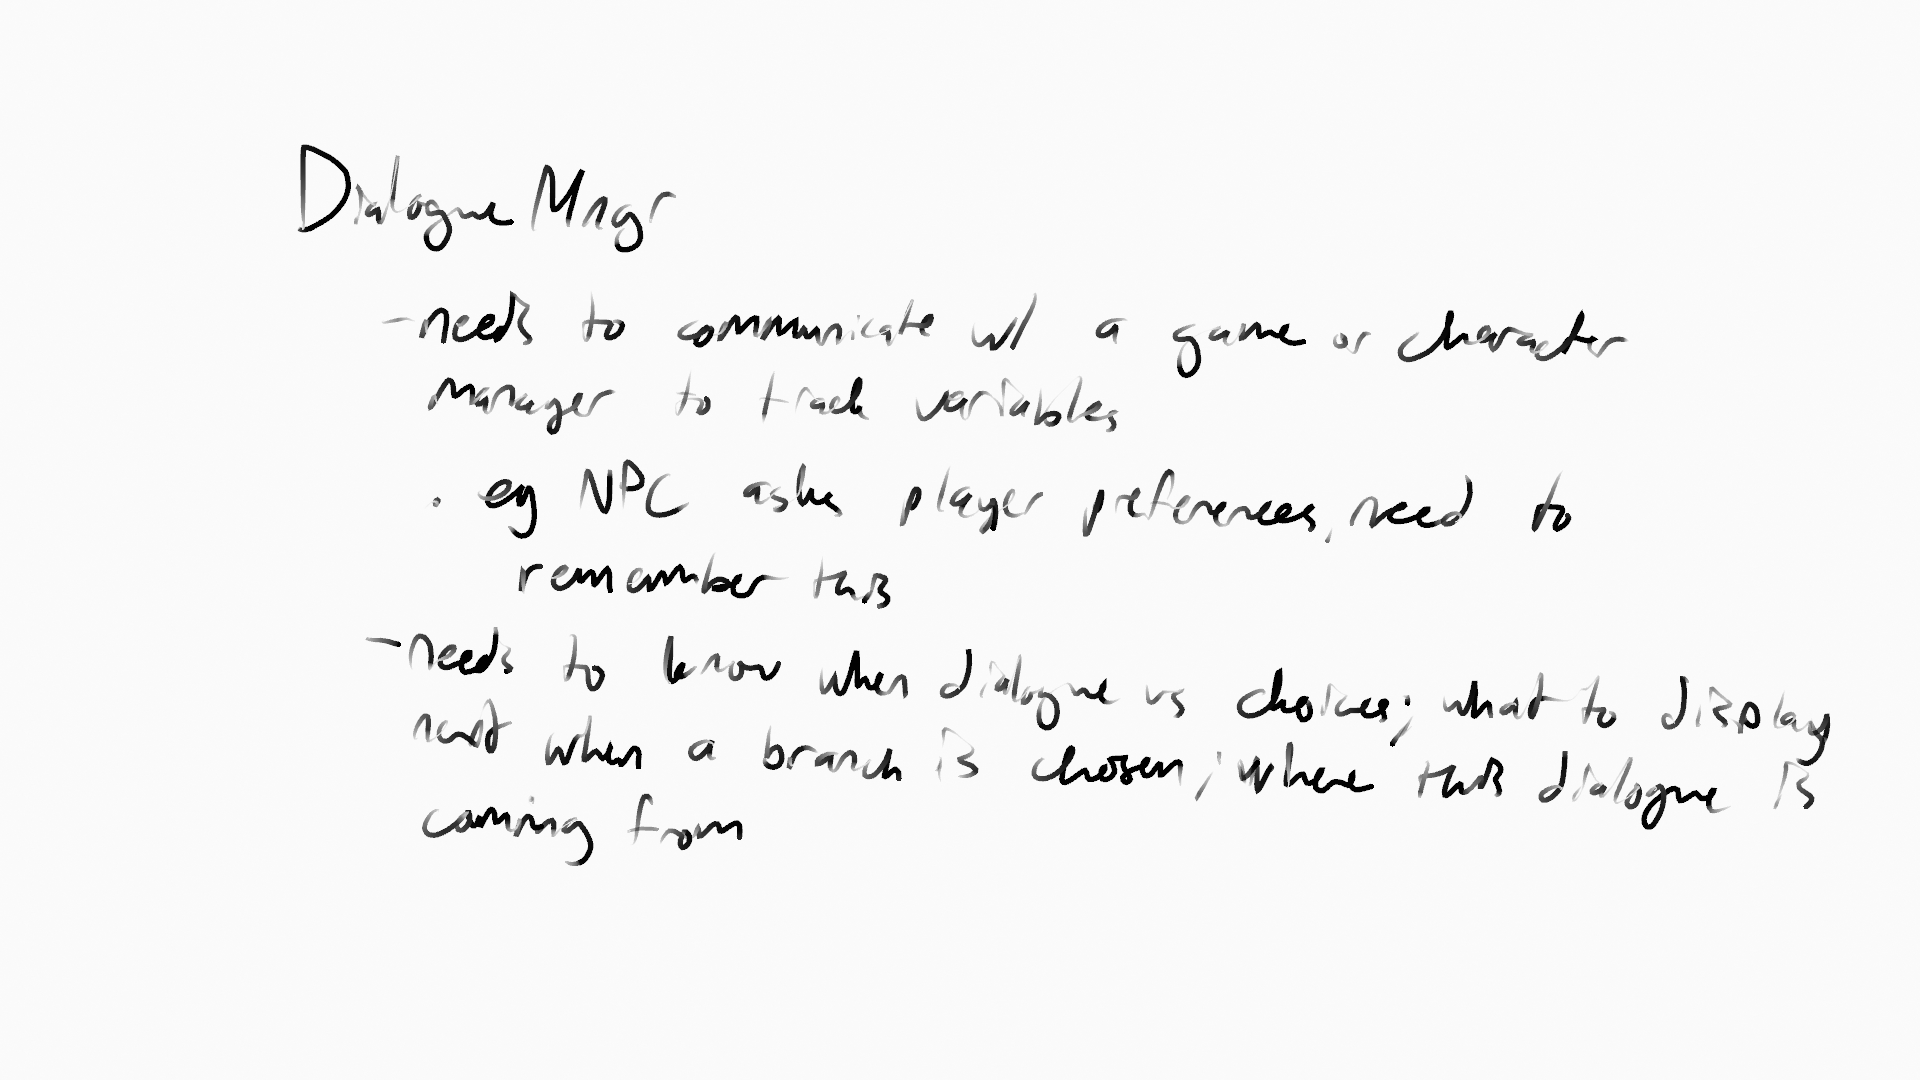 Dialogue Mngr
- needs to communicate w/ a game or character
manager to track variables
· eg NPC asks player preferences, need to
remember this
- needs to know when dialogue vs choices; what to display
next when a branch is chosen; where this dialogue is
coming from